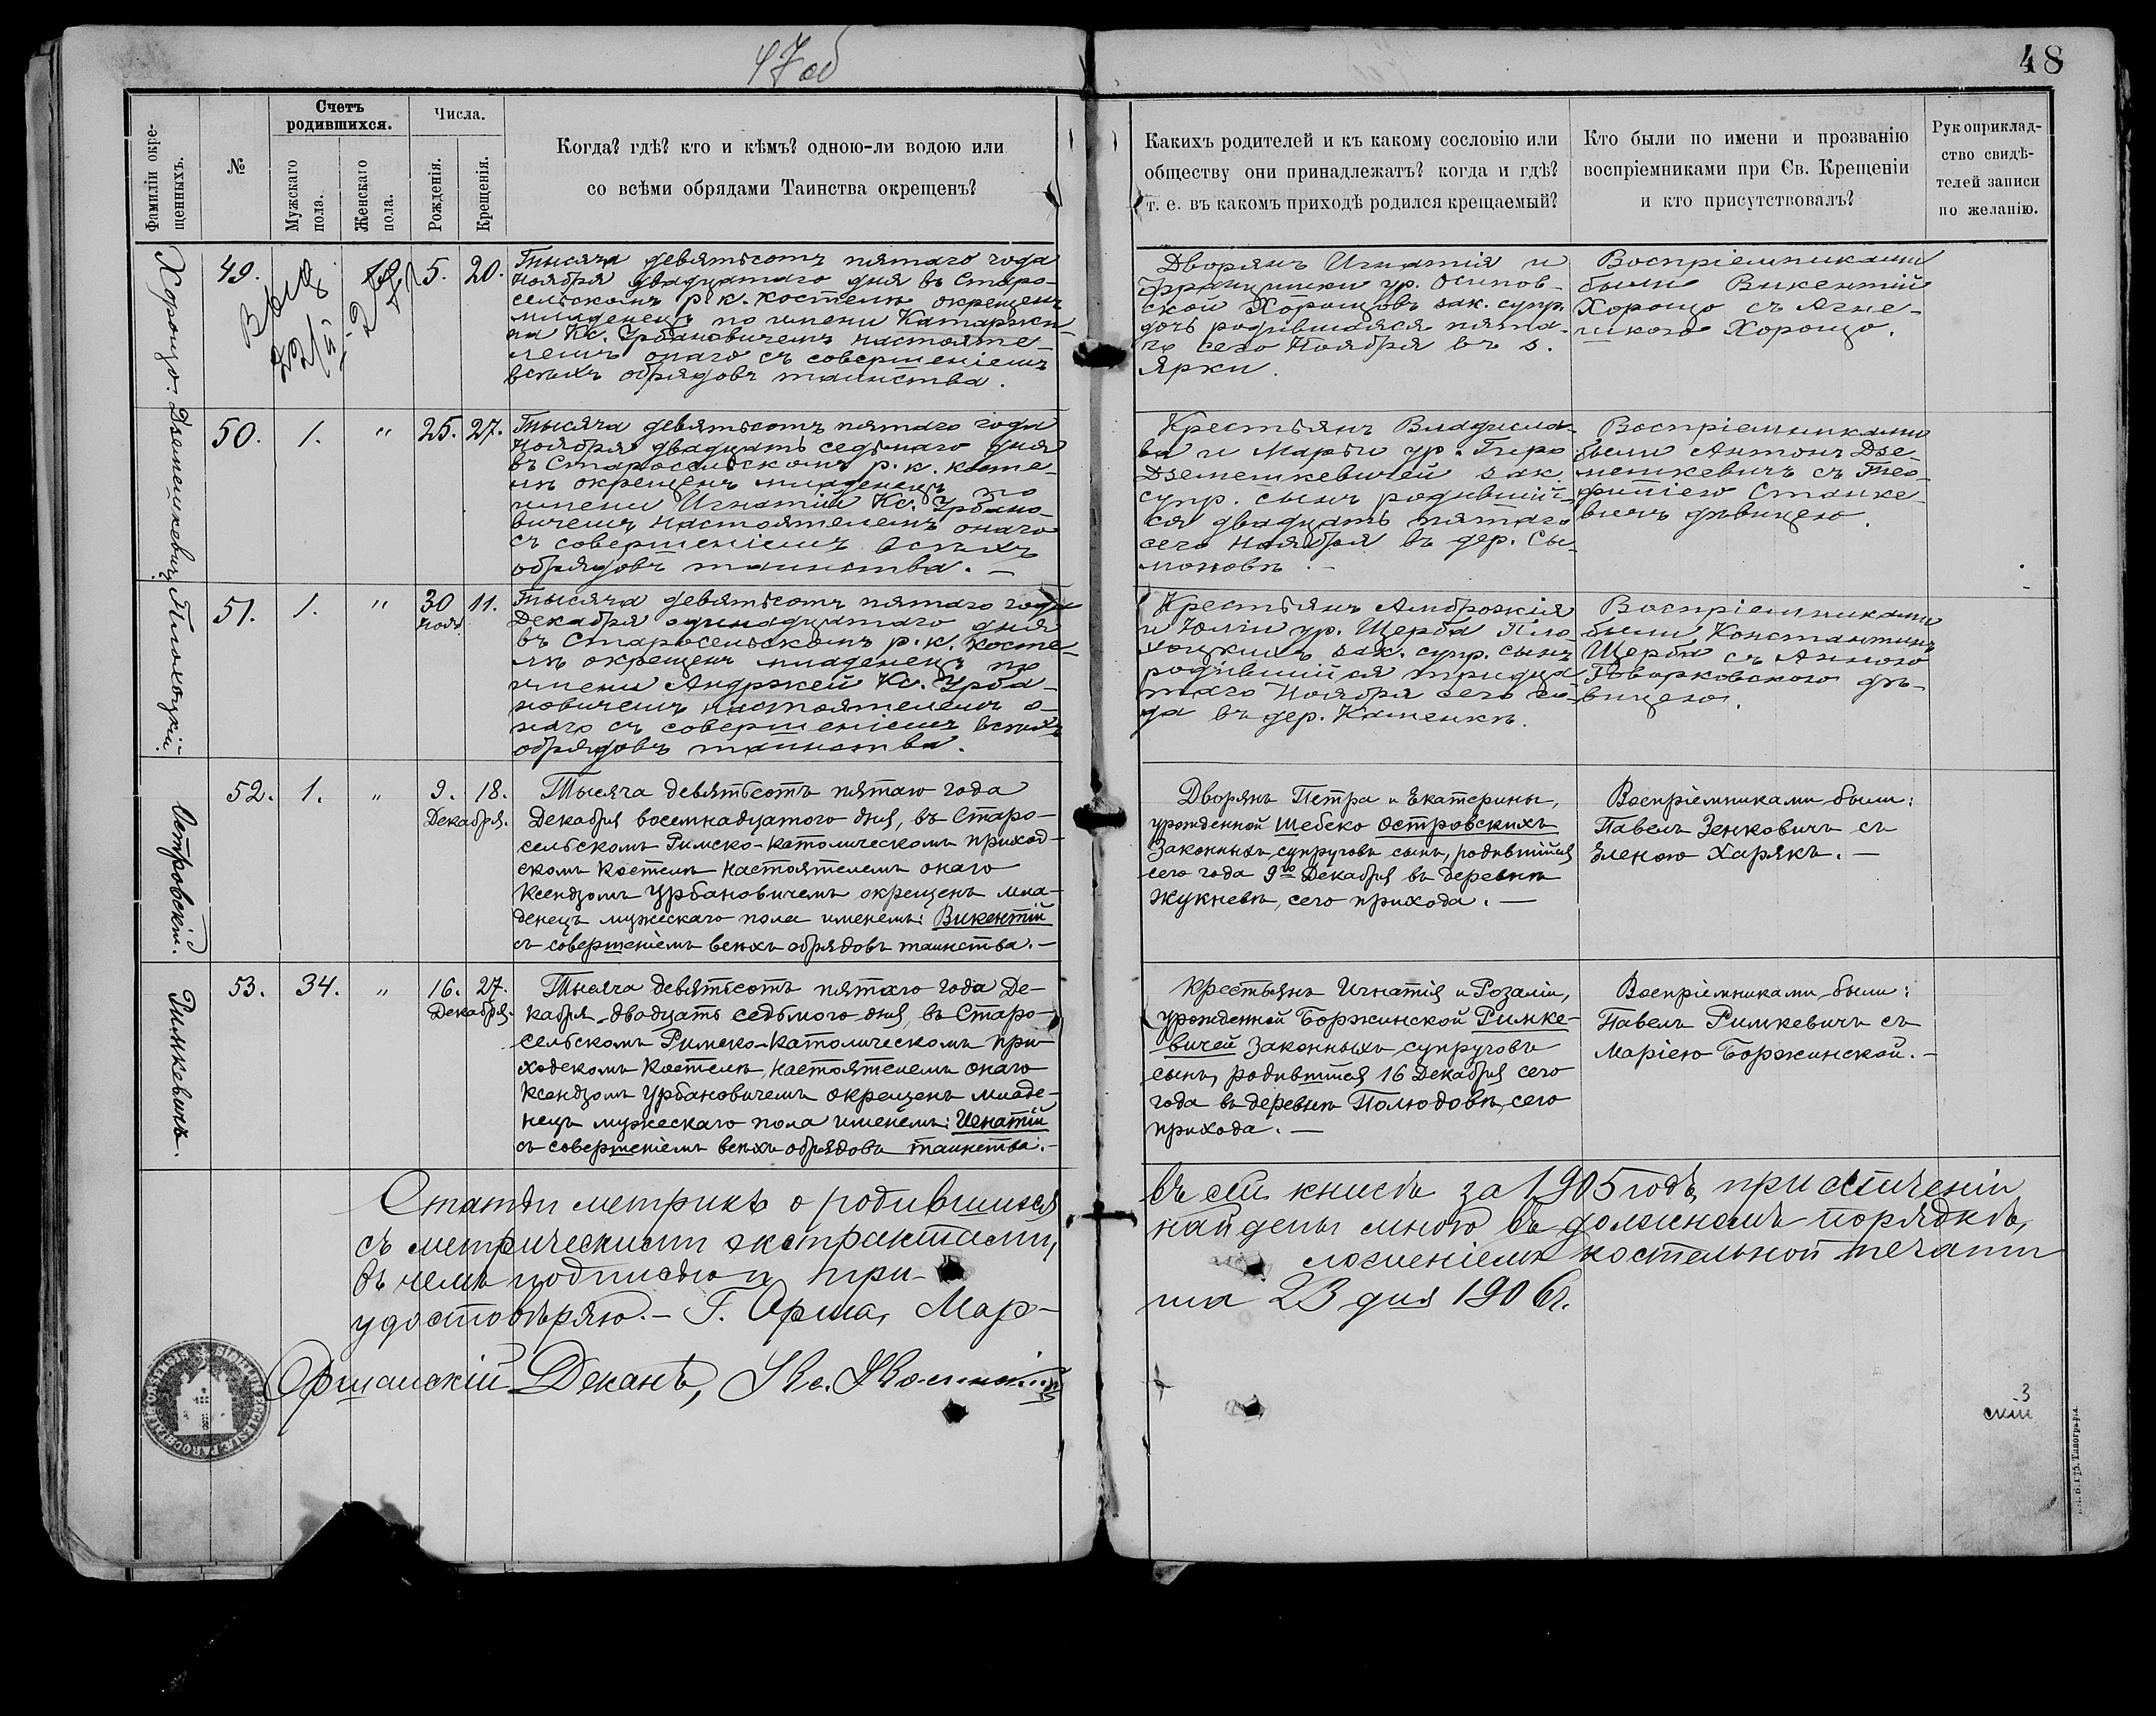 47 об
48
Фамиліи окре-
щенныхъ.
№
Счетъ
родившихся.
Мужскаго
пола.
Женскаго
пола.
Числа.
Рожденія.
Крещенія.
Когда? гдѣ? кто и кѣмъ? одною-ли водою или
со всѣми обрядами Таинства окрещенъ?
Какихъ родителей и къ какому сословію или
обществу они принадлежатъ? когда и гдѣ?
т. е. въ какомъ приходѣ родился крещаемый?
Кто были по имени и прозванію
воспріемниками при Св. Крещеніи
и кто присутствовалъ?
Рукоприклад-
ство свидѣ-
телей записи
по желанію.
Хорощо.
49.
5. 20.
Тысяча девятьсотъ пятаго года
Ноября двадцатаго дня въ Старо-
сельскомъ р. к. костелѣ окрещенъ
младенецъ по имени Катаржи-
на Кс. Урбановичемъ настояте-
лемъ онаго съ совершеніемъ
всѣхъ обрядовъ таинства.
Дворянъ Игнатія и
Францишки ур. Осипов-
ской Хорощовъ зак. супр.
дочь родившаяся пята-
го сего Ноября въ з.
Ярки.
Воспріемниками
были Викентій
Хорощо съ Агне-
шкою Хорощо.
Дземешкевичъ
50.
1.
"
25. 27.
Тысяча девятьсотъ пятаго года
Ноября двадцать седьмаго дня
въ Старосельскомъ р. к. косте-
лѣ окрещенъ младенецъ по
имени Игнатій Кс. Урбано-
вичемъ настоятелемъ онаго
съ совершеніемъ всѣхъ
обрядовъ таинства. —
Крестьянъ Владисла-
ва и Марьи ур. Гиро
Дземешкевичей зак.
супр. сынъ родившій-
ся двадцать пятаго
сего Ноября въ дер. Сы-
моновѣ. —
Воспріемниками
были Антонъ Дзе-
мешкевичъ съ Тео-
филіею Станке-
вичъ дѣвицею.
Плохоцкій.
51.
1.
"
30 11.
Нояб.
Тысяча девятьсотъ пятаго года
Декабря одинадцатаго дня
въ Старосельскомъ р. к. косте-
лѣ окрещенъ младенецъ по
имени Андржей Кс. Урба-
новичемъ настоятелемъ о-
наго съ совершеніемъ всѣхъ
обрядовъ таинства.
Крестьянъ Амброжія
и Юліи ур. Щерба Пло-
хоцкихъ зак. супр. сынъ
родившійся тридца-
таго Ноября сего го-
да въ дер. Каменкѣ.
Воспріемниками
были Константинъ
Щерба съ Анною
Говорковскою дѣ-
вицею.
Островскій.
52.
1.
"
9. 18.
Декабря.
Тысяча девятьсотъ пятаго года
Декабря восемнадцатого дня, въ Старо-
сельскомъ Римско-Католическомъ приход-
скомъ Костелѣ Настоятелемъ онаго
Ксендзомъ Урбановичемъ окрещенъ мла-
денецъ мужескаго пола именемъ: Викентій
съ совершеніемъ всѣхъ обрядовъ таинства. —
Дворянъ Петра и Екатерины,
урожденной Шебеко Островскихъ
Законныхъ супруговъ сынъ, родившійся
сего года 9го Декабря въ деревнѣ
Жукневѣ, сего прихода. —
Воспріемниками были:
Павелъ Зенковичъ съ
Еленою Харякъ. —
Римкевичъ.
53.
34.
"
16. 27.
Декабря.
Тысяча девятьсотъ пятаго года Де-
кабря двадцать седьмого дня, въ Старо-
сельскомъ Римско-Католическомъ при-
ходскомъ Костелѣ, Настоятелемъ онаго
Ксендзомъ Урбановичемъ окрещенъ младе-
нецъ мужескаго пола именемъ: Игнатій
съ совершеніемъ всѣхъ обрядовъ таинства. —
Крестьянъ Игнатія и Розаліи,
урожденной Боржинской Римке-
вичей Законныхъ супруговъ
сынъ, родившійся 16 Декабря сего
года въ деревнѣ Полюдовѣ, сего
прихода. —
Воспріемниками были:
Павелъ Римкевичъ съ
Маріею Боржинской. —
Статьи метрикъ о родившихся
съ метрическими экстрактами,
въ чемъ подписью и при-
удостовѣряю. — Г. Орша, Мар-
Оршанскій Деканъ, Кс.
въ сей книгѣ за 1905 годъ, при сличеніи
найдены мною въ должномъ порядкѣ,
ложеніемъ костельной печати
та 23 дня 1906 г.